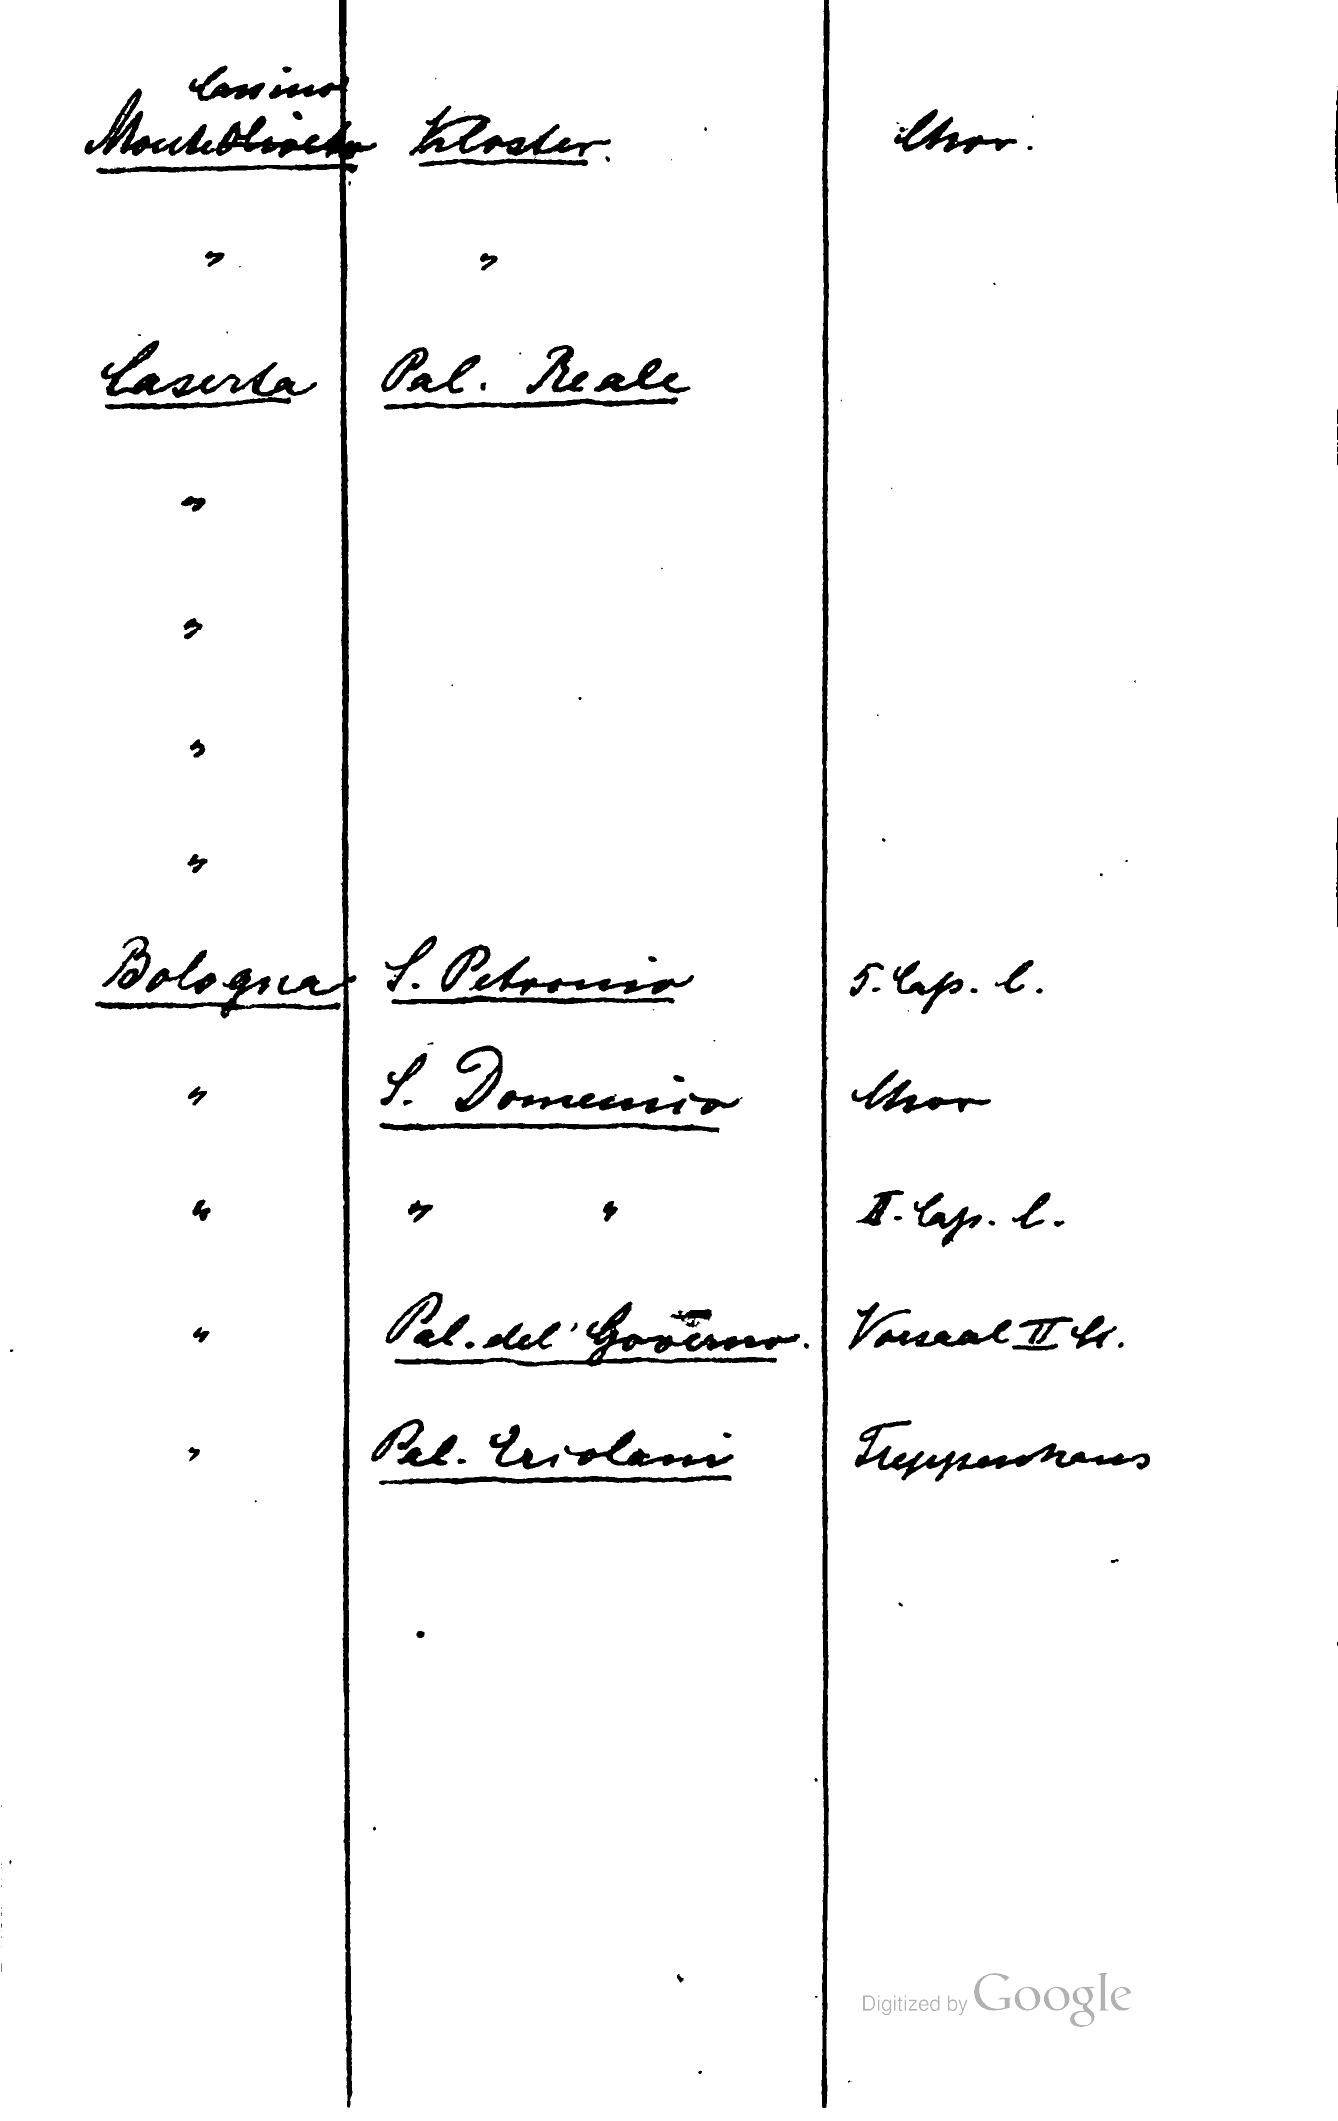 Cassino
Monte Oliveto Kloster. Chor.
" "
Caserta Pal. Reale
"
"
"
"
Bologna S. Petronio 5. Cap. l.
" S. Domenico Chor
" " " II. Cap. l.
" Pal. del' Governo. Vorsaal II St.
" Pal. Ercolani Treppenhaus
Digitized by Google